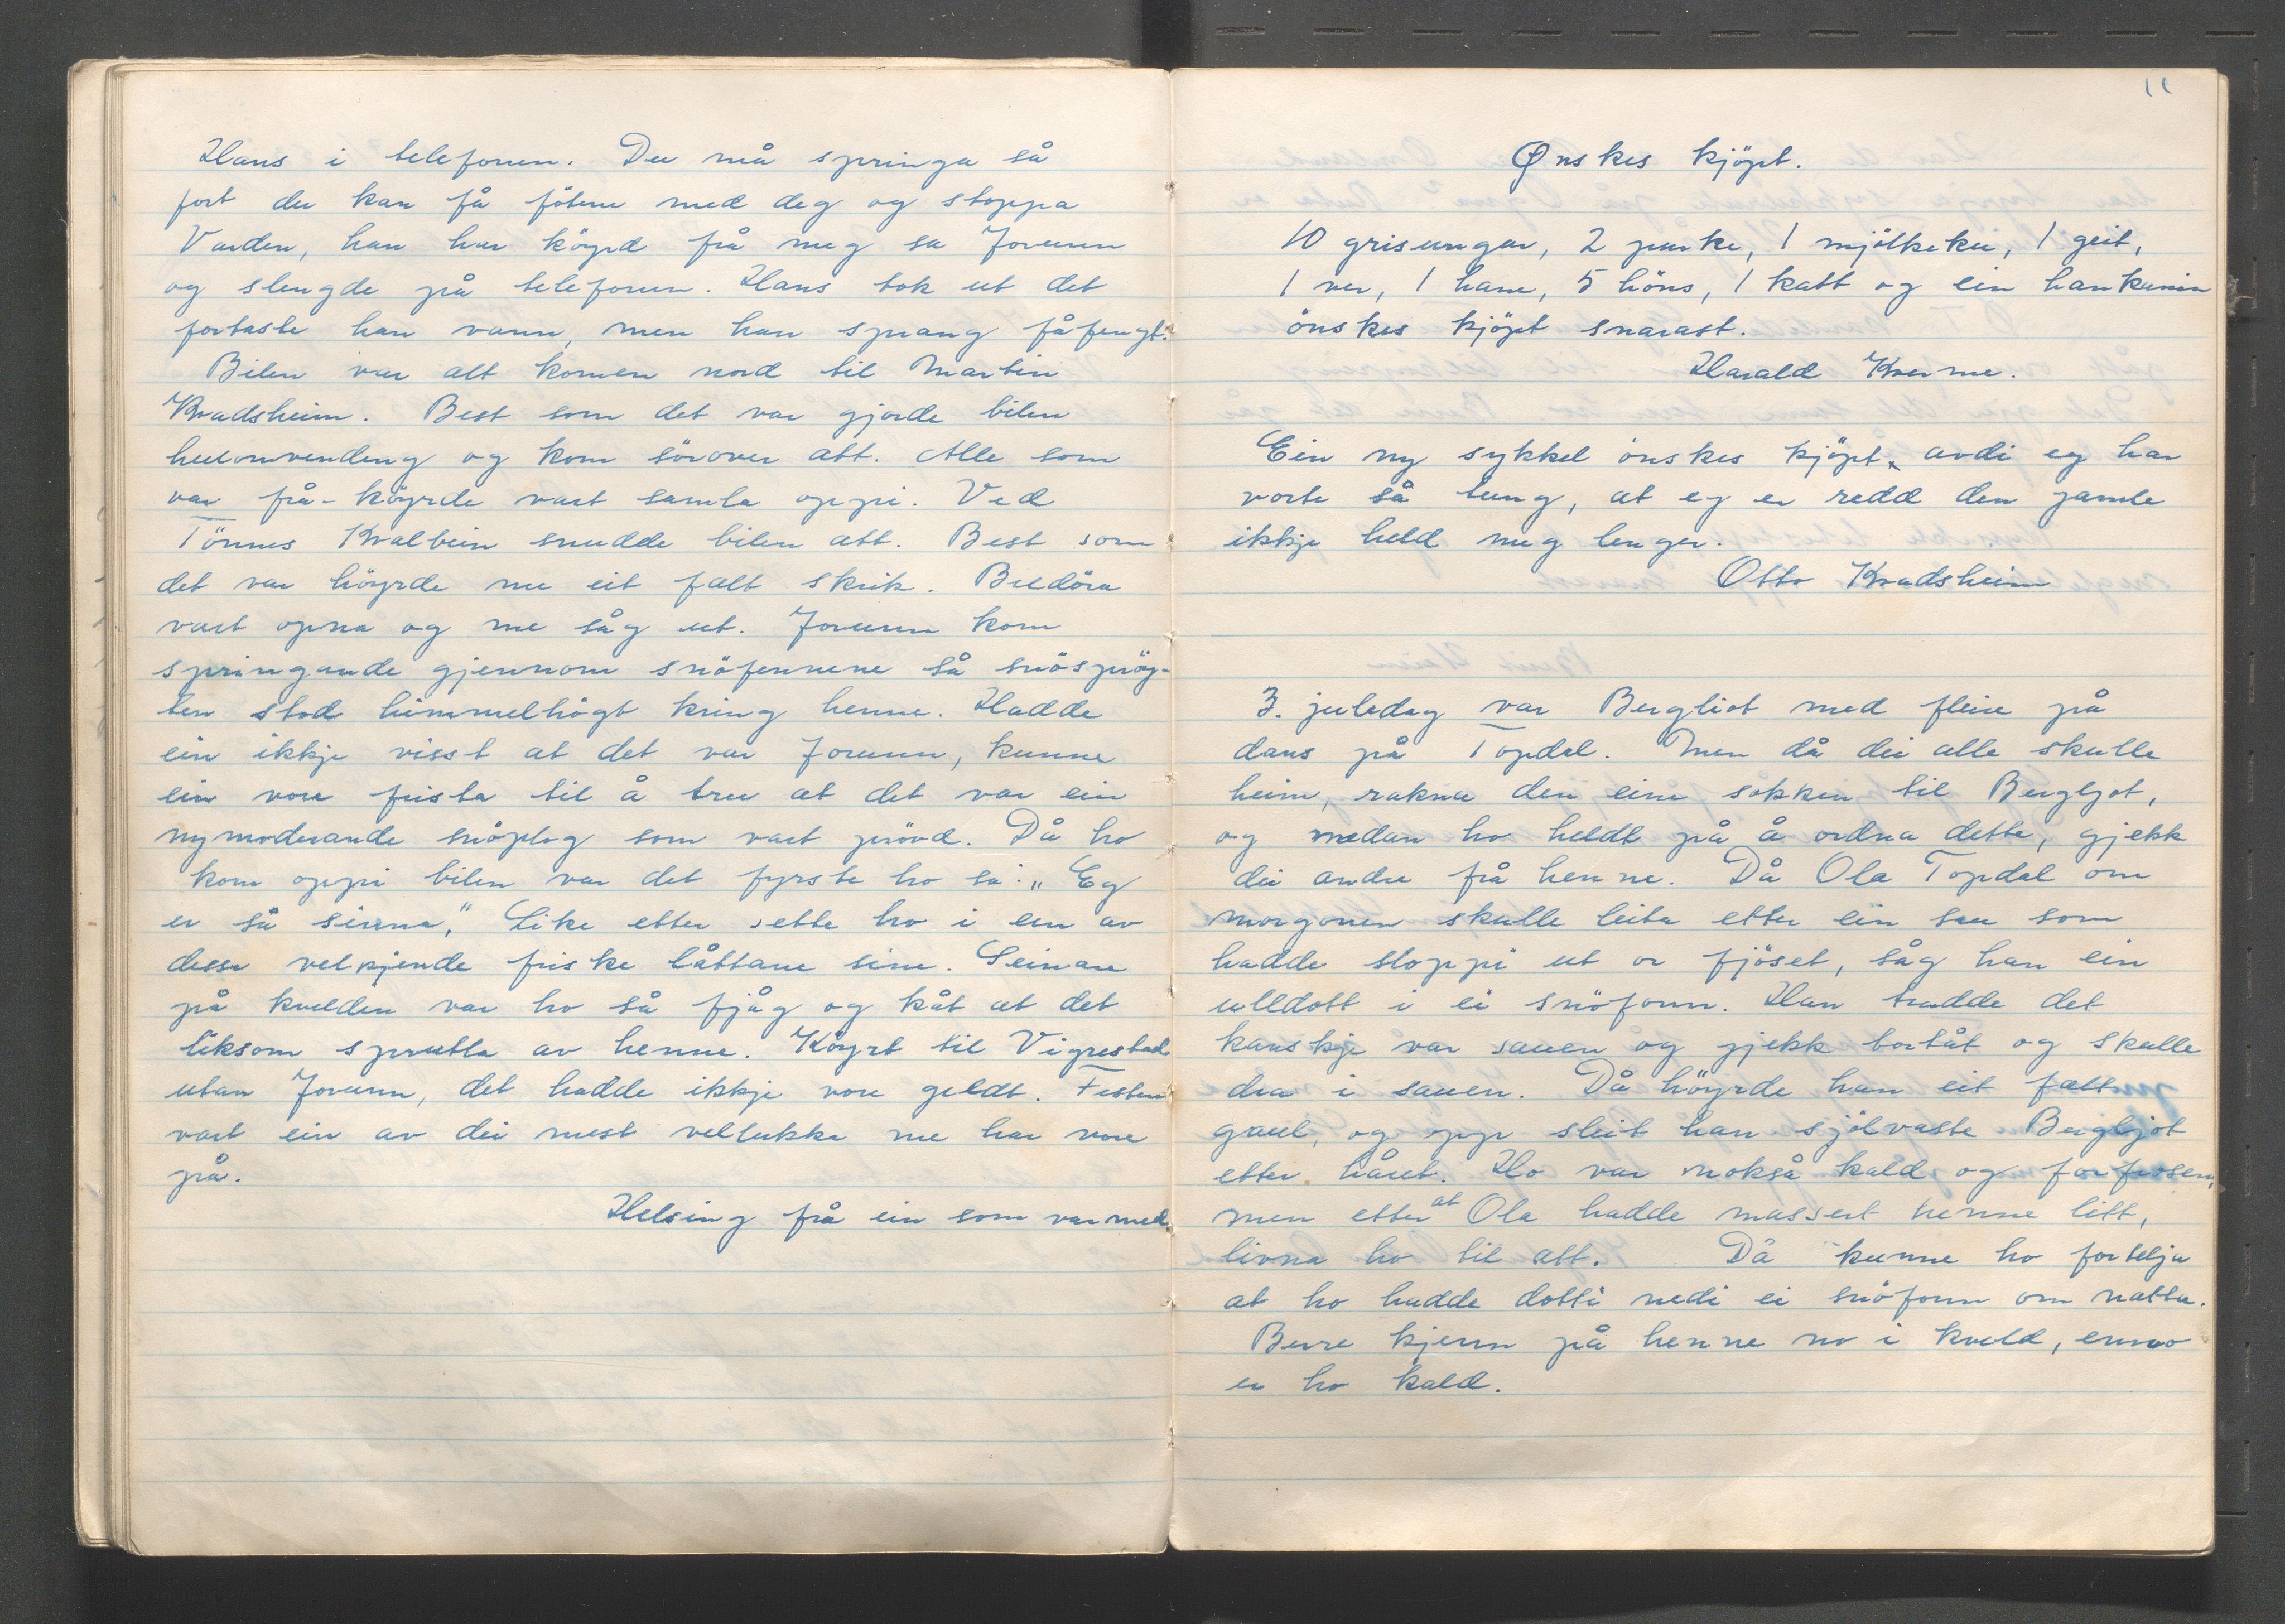 Hans i telefonen. Du må springa så
fort du kan få föterne med deg og stoppa
Varden, han har köyrd frå meg sa Jorunn
og slengde på telefonen. Hans tok ut det
fortaste han vann, men han sprang fåfengt.
Bilen var alt komen nord til Martin
Kvadsheim. Best som det var gjorde bilen
heilomvending og kom sörover att. Alle som
var frå-köyrde vart samla oppi. Ved
Tönnes Kvalbein snudde bilen att. Best som
det var höyrde me eit fælt skrik. Bildöra
vart opna og me såg ut. Jorunn kom
springande gjennom snöfennene så snöspröy-
ten stod himmelhögt kring henne. Hadde
ein ikkje visst at det var Jorunn, kunne
ein vore frista til å tru at det var ein
nymoderande snöplog som vart prövd. Då ho
kom oppi bilen var det fyrste ho sa: „Eg
er så sinna," Like etter sette ho i ein av
desse velkjende friske låttane sine. Seinare
på kvelden var ho så fjåg og kåt at det
liksom sprutta av henne. Köyrt til Vigrestad
utan Jorunn, det hadde ikkje vore gildt. Festen
vart ein av dei mest vellukka me har vore
på.
Helsing frå ein som var med
11
Ønskes kjöpt.
10 grisungar, 2 purke, 1 mjölkeku, 1 geit,
1 ver, 1 hane, 5 höns, 1 katt og ein hankanin
önskes kjöpt snarast.
Harald Kverme.
Ein ny sykkel önskes kjöpt, avdi eg har
vorte så tung, at eg er redd den gamle
ikkje held meg lenger.
Otto Kvadsheim
3. juledag var Bergliot med fleire på
dans på Topdal. Men då dei alle skulle
heim, rakna den eine sokken til Bergljot,
og medan ho heldt på å ordna dette, gjekk
dei andre frå henne. Då Ola Topdal om
morgonen skulle leita etter ein sau som
hadde sloppi ut or fjöset, såg han ein
ulldott i ei snöfonn. Han trudde det
kanskje var sauen og gjekk bortåt og skulle
dra i sauen. Då höyrde han eit fælt
gaul, og opp sleit han sjölvaste Bergljot
etter håret. Ho var nokså kald og forfrosen,
men etter at Ola hadde massert henne litt,
livna ho til att. Då kunne ho fortelja
at ho hadde dotti nedi ei snöfonn om natta.
Berre kjenn på henne no i kveld, enno
er ho kald.